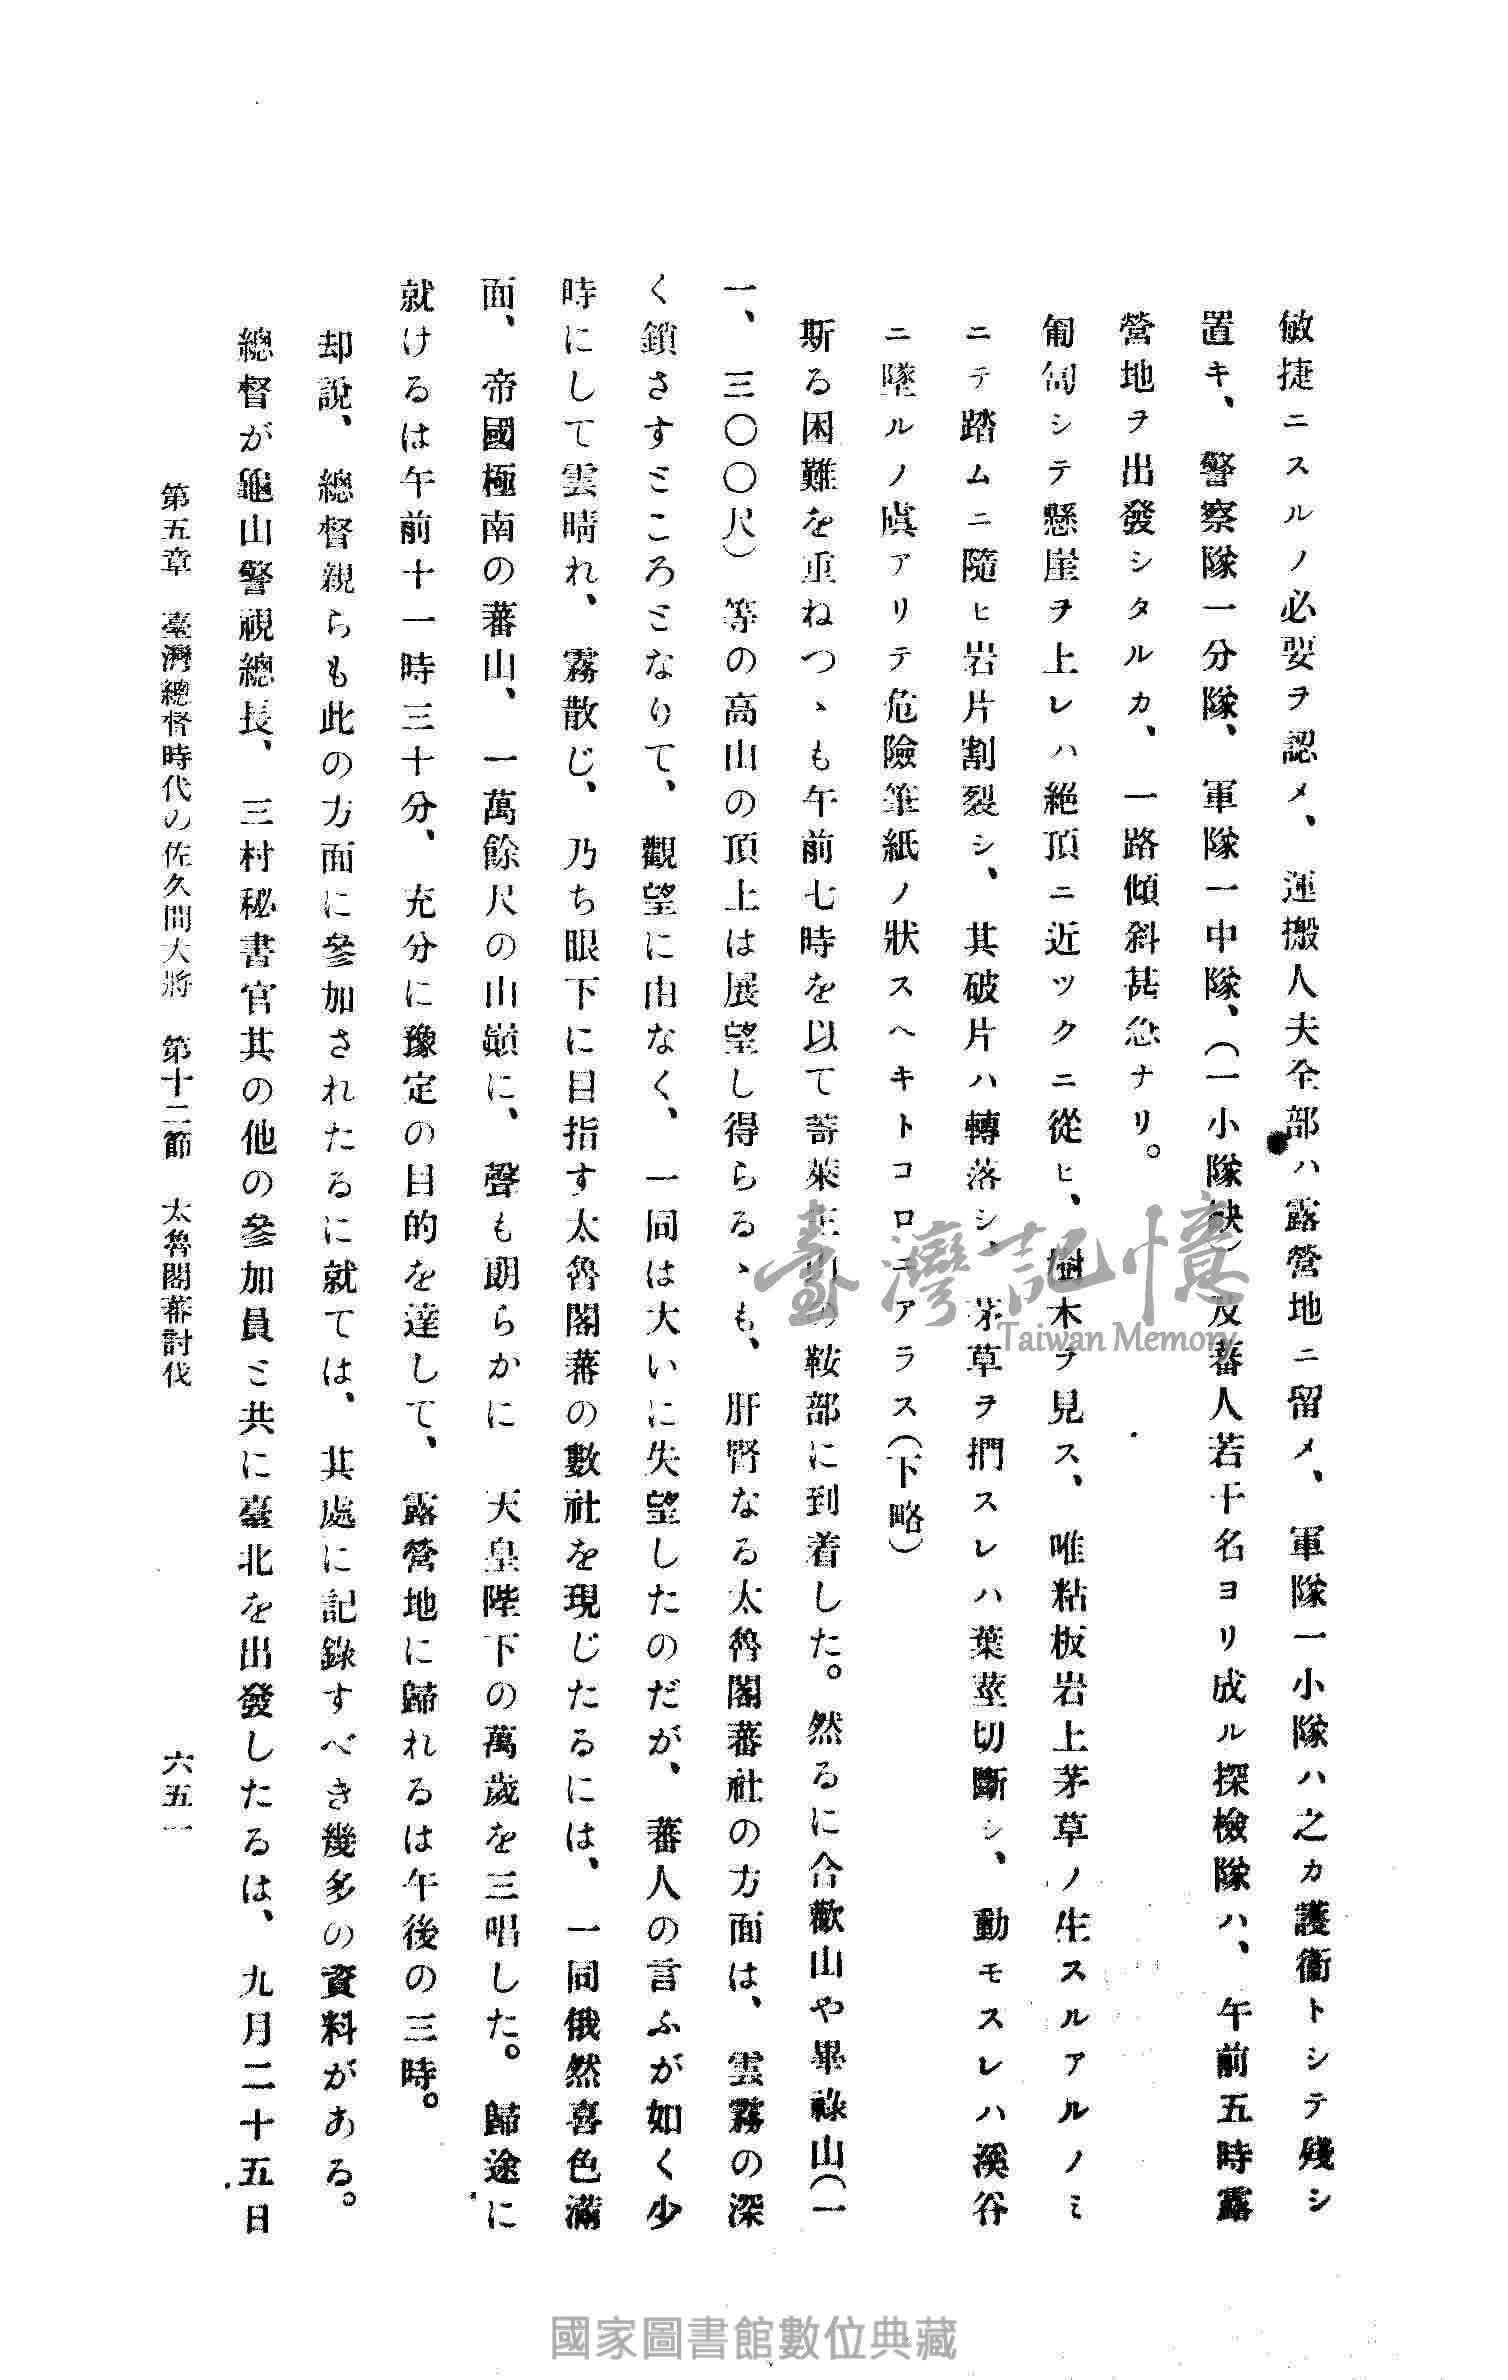 敏捷ニスルノ必要ヲ認メ、運搬人夫全部ハ露營地ニ留メ、軍隊一小隊ハ之カ護衞トシテ殘シ
置キ、警察隊一分隊、軍隊一中隊、(一小隊缺)及蕃人若干名ヨリ成ル探檢隊ハ、午前五時露
營地ヲ出發シタルカ、一路傾斜甚急ナリ。
匍匐シテ懸崖ヲ上レハ絕頂ニ近ツクニ從ヒ、樹木ヲ見ス、唯粘板岩上茅草ノ生スルアルノミ
ニテ踏ムニ隨ヒ岩片割裂シ、其破片ハ轉落シ、茅草ヲ捫スレハ葉莖切斷シ、動モスレハ溪谷
ニ墜ルノ虞アリテ危險筆紙ノ狀スヘキトコロニアラス(下略)
斯る困難を重ねつゝも午前七時を以て蓊萊主山の鞍部に到着した。然るに合歡山や畢祿山(一
一、三〇〇尺)等の高山の頂上は展望し得らるゝも、肝腎なる太魯閣蕃社の方面は、雲霧の深
く鎖さすところとなりて、觀望に由なく、一同は大いに失望したのだが、蕃人の言ふが如く少
時にして雲晴れ、霧散じ、乃ち眼下に目指す太魯閣蕃の數社を現じたるには、一同俄然喜色滿
面、帝國極南の蕃山、一萬餘尺の山巓に、聲も朗らかに　天皇陛下の萬歲を三唱した。歸途に
就けるは午前十一時三十分、充分に豫定の目的を達して、露營地に歸れるは午後の三時。
却說、總督親らも此の方面に參加されたるに就ては、其處に記錄すべき幾多の資料がある。
總督が龜山警視總長、三村秘書官其の他の參加員と共に臺北を出發したるは、九月二十五日
第五章　臺灣總督時代の佐久間大將　第十二節　太魯閣蕃討伐
六五一
臺灣記憶
Taiwan Memory
國家圖書館數位典藏